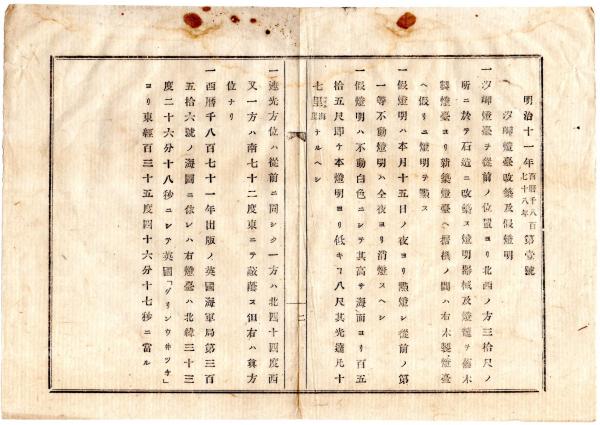 明治十一年西暦千八百七十八年第壹號
汐岬燈臺改築及假燈明
一汐岬燈臺ヲ從前ノ位置ヨリ北西ノ方三拾尺ノ
所ニ於テ石造ニ改築ス燈明器械及燈籠ヲ舊木
製燈臺ヨリ新築燈臺ヘ搭機ノ間ハ右木製燈臺
ヘ假リニ燈明ヲ點ス
一假燈明ハ本月十五日ノ夜ヨリ點燈シ從前ノ第
一等不動燈明ハ全夜ヨリ消燈スヘシ
一假燈明ハ不動白色ニシテ其高サ海面ヨリ百五
拾五尺即チ本燈明ヨリ低キヿ八尺其光達凡十
七里海里ナルヘシ
一達光方位ハ從前ニ同シク一方ハ北四十四度西
又一方ハ南七十二度東ニテ蔽蔭ス但右ハ眞方
位ナリ
一西曆千八百七十一年出版ノ英國海軍局第三百
五拾六號ノ海圖ニ依レハ右燈臺ハ北緯三十三
度二十六分十八秒ニシテ英國「グリンウ井ツチ」
ヨリ東經百三十五度四十六分十七秒ニ當ル
二